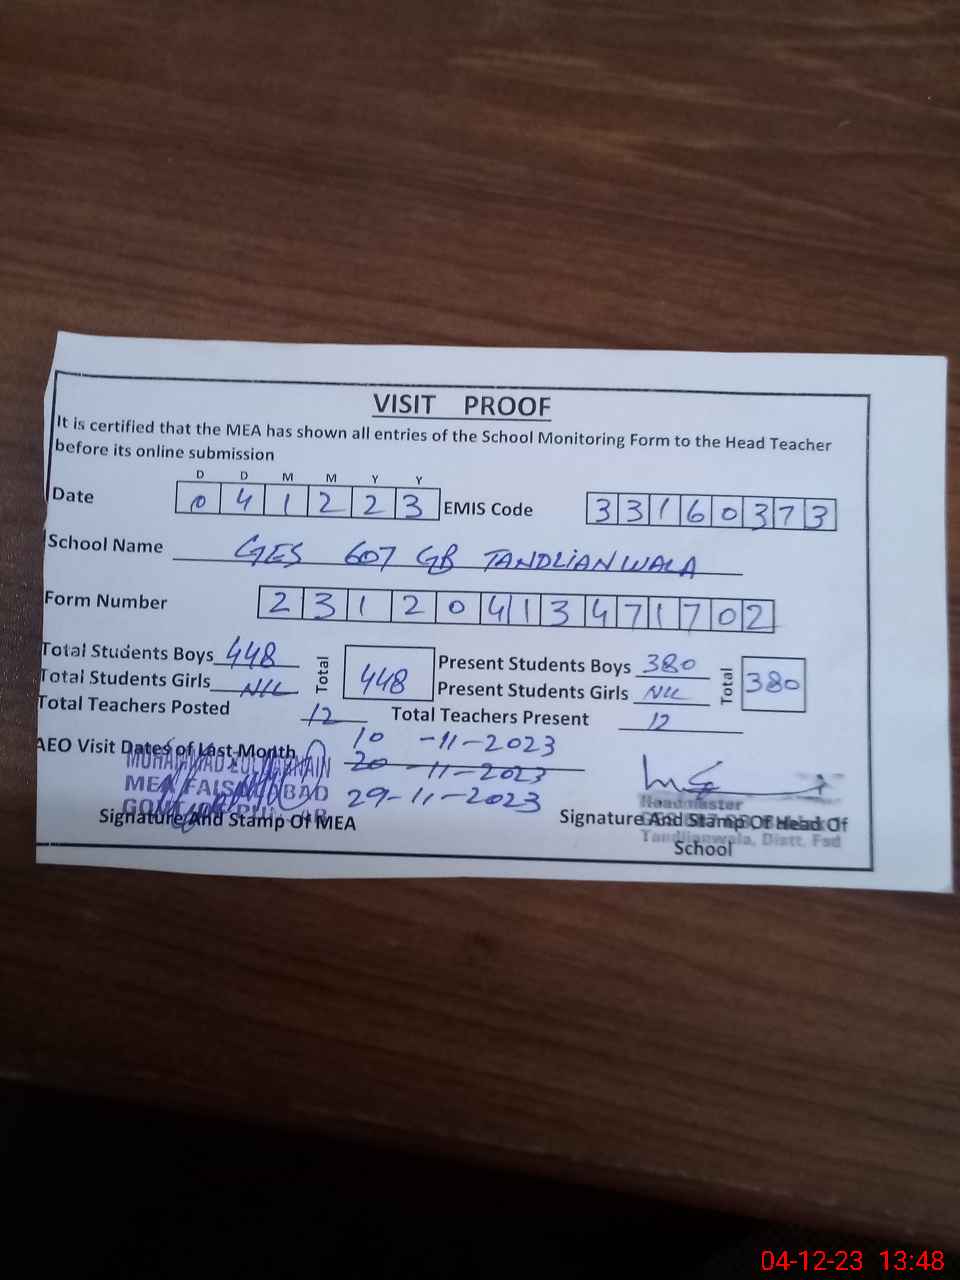 VISIT PROOF
It is certified that the MEA has shown all entries of the School Monitoring Form to the Head Teacher
before its online submission
D D M M Y Y
Date 0 4 1 2 2 3 EMIS Code 3 3 1 6 0 3 7 3
School Name GES 607 GB TANDLIANWALA
Form Number 2 3 1 2 0 4 1 3 4 7 1 7 0 2
Total Students Boys 448 Total 448 Present Students Boys 380 Total 380
Total Students Girls NIL Present Students Girls NIL
Total Teachers Posted 12 Total Teachers Present 12
AEO Visit Dates of Last Month 10 -11-2023
20 -11-2023
29-11-2023
MUHAMMAD ZULQARNAIN
MEA FAISALABAD
Headmaster
Tandlianwala, Distt. Fsd
Signature And Stamp Of MEA Signature And Stamp Of Head Of
School
04-12-23 13:48